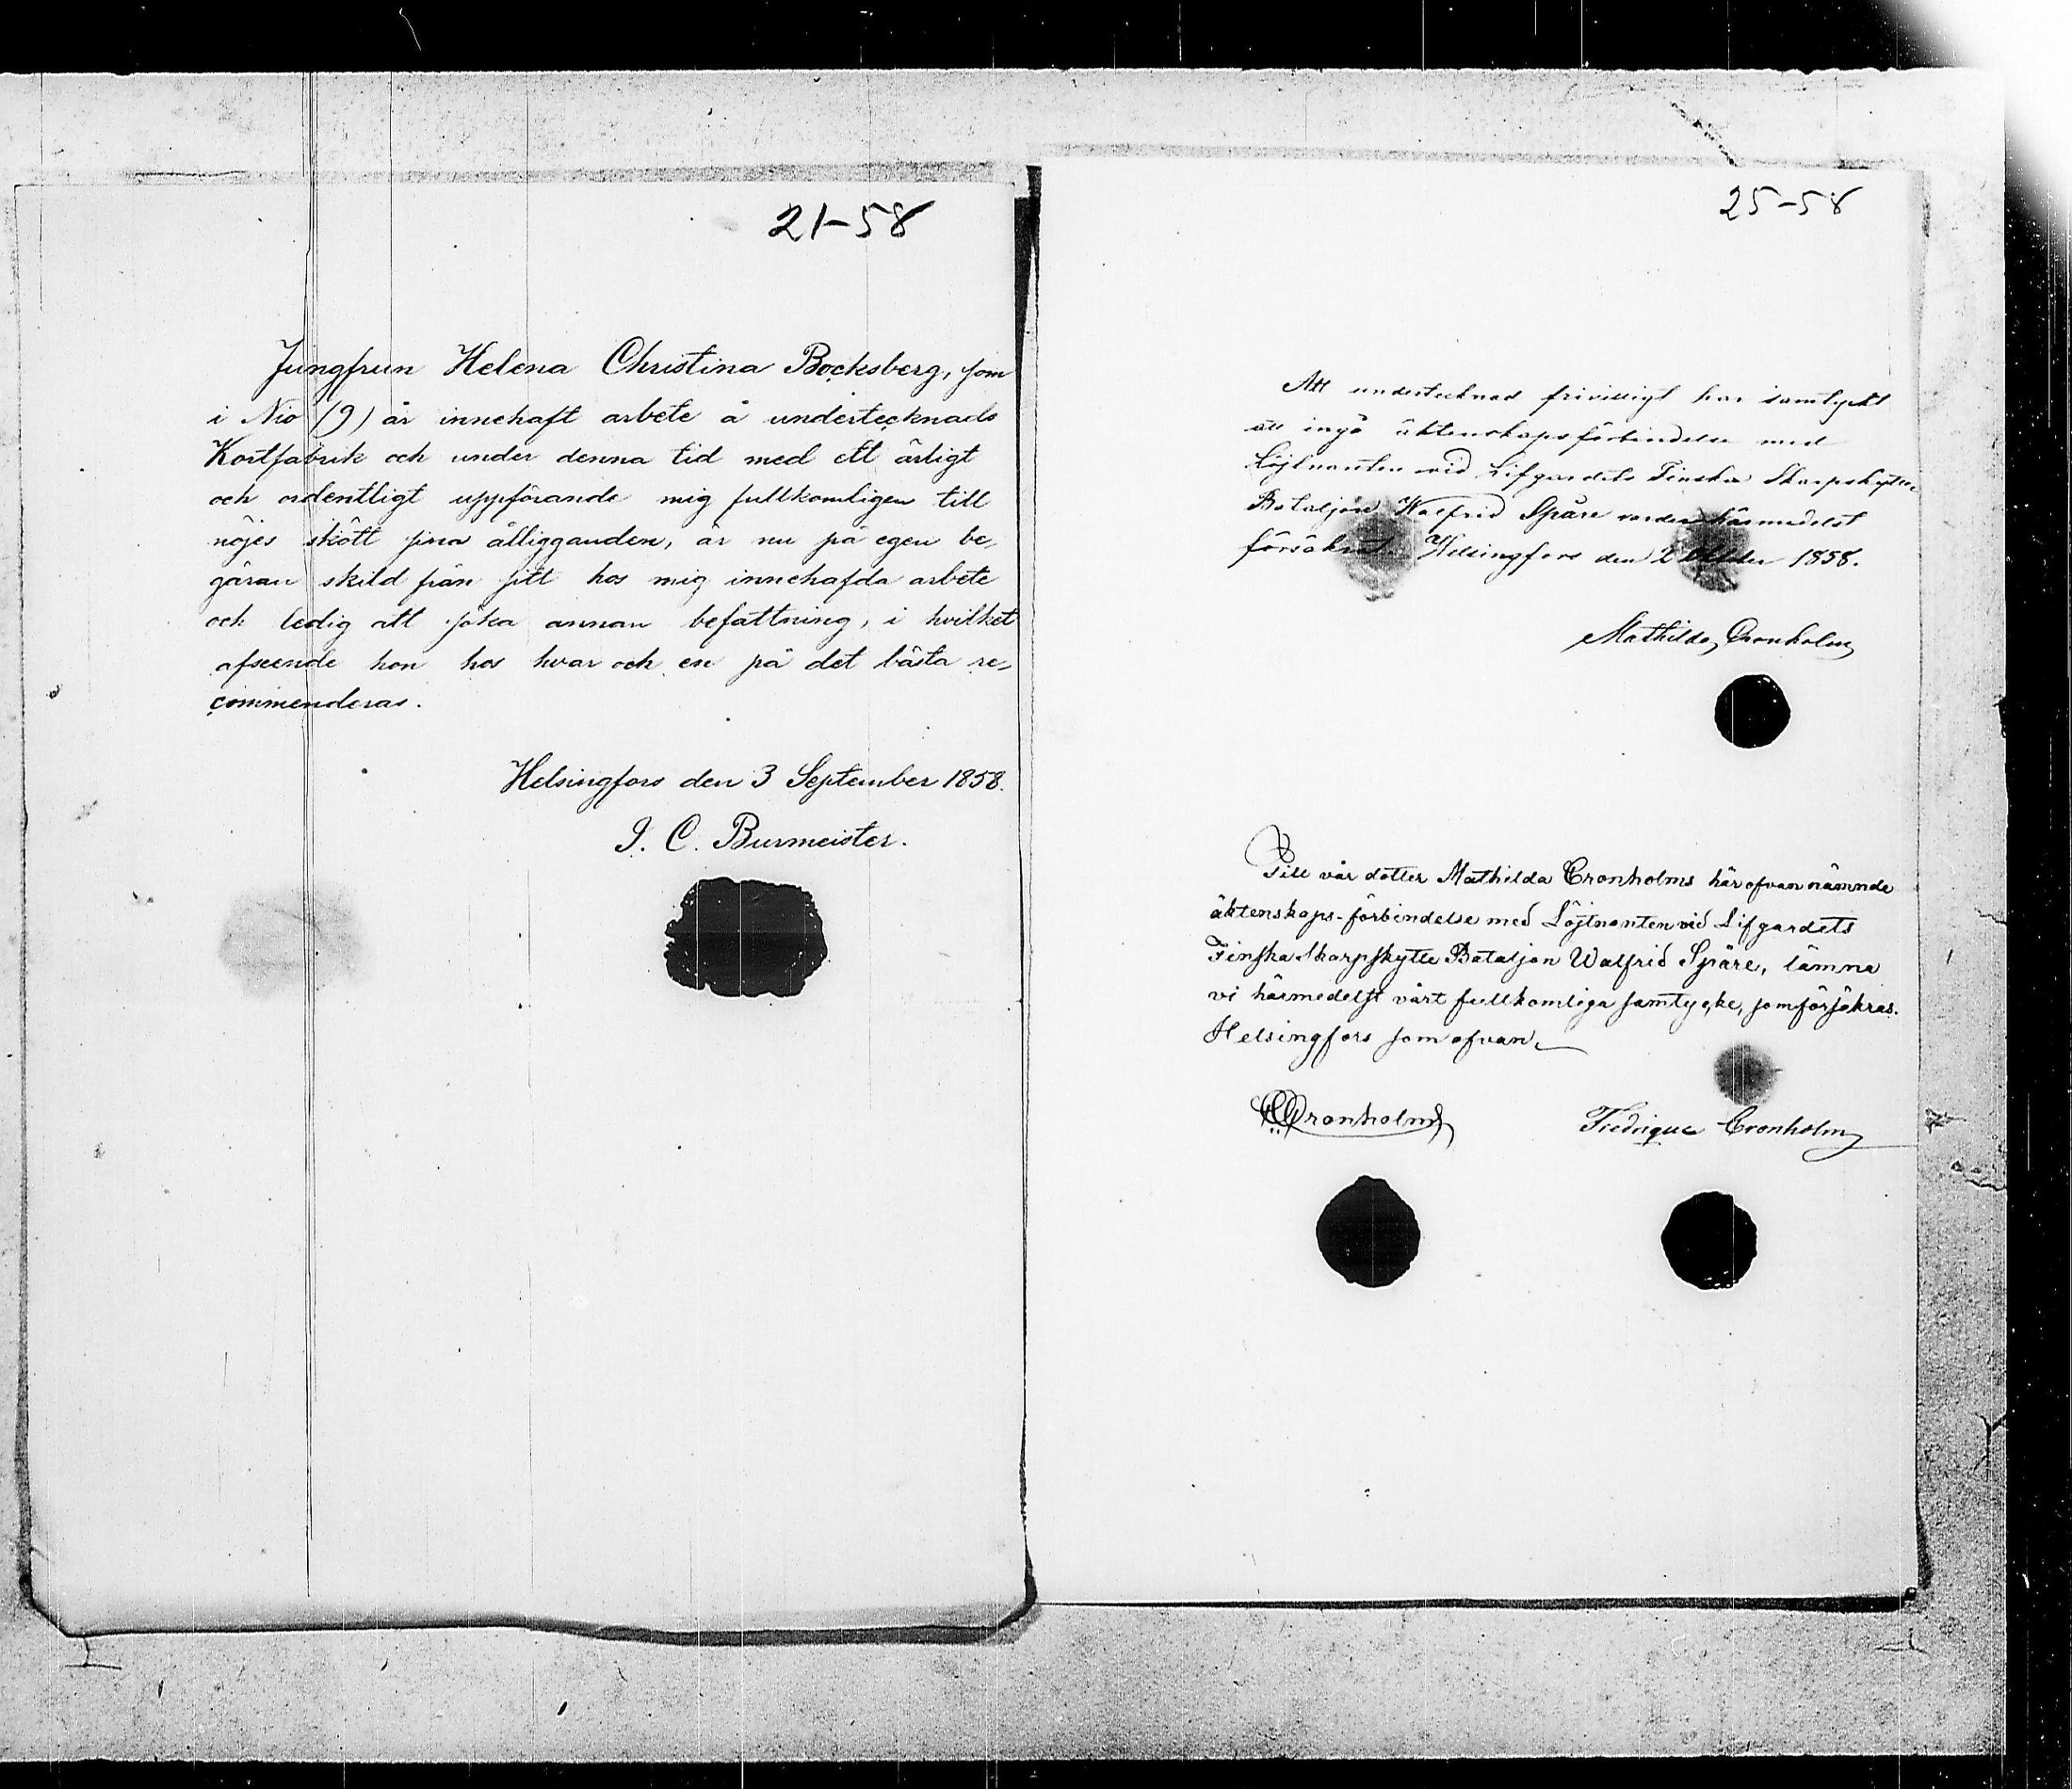 21-58
Jungfrun Helena Christina Bocksberg, som
i Nio (9) år innehaft arbete å undertecknads
Kortfabrik och under denna tid med ett ärligt
och ordentligt uppförande mig fullkomligen till
nöjes skött sina åligganden, är nu på egen be-
gäran skild från sitt hos mig innehafda arbete
och ledig att söka annan befattning, i hvilket
afseende hon hos hvar och en på det bästa re-
commenderas.
Helsingfors den 3 September 1858.
J. C. Burmeister.
25-58
Att undertecknad frivilligt har samtyckt
att ingå äktenskapsförbindelse med
Löjtnanten vid Lifgardets Finska Skarpskytte
Bataljon Walfrid Spåre varder härmedelst
försäkrat. Helsingfors den 2 Oktober 1858.
Mathilda Cronholm
Till vår dotter Mathilda Cronholms här ofvan nämnde
äktenskaps-förbindelse med Löjtnanten vid Lifgardets
Finska Skarpskytte Bataljon Walfrid Spåre, lämna
vi härmedelst vårt fullkomliga samtycke, som försäkras.
Helsingfors som ofvan.
Cronholm
Fredrique Cronholm